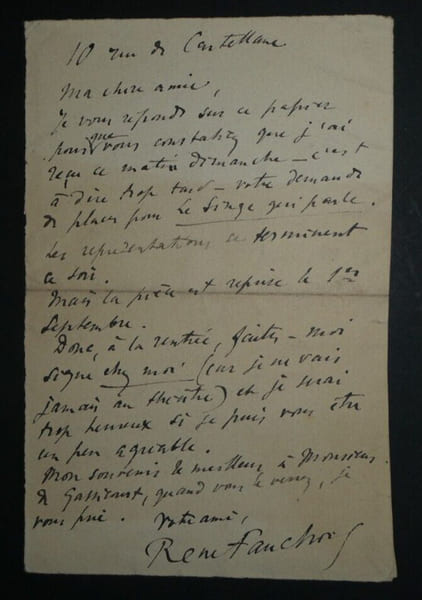 10 rue de Castellane
Ma chère amie,
Je vous réponds sur ce papier
pour que vous constatiez que j'ai
reçu ce matin dimanche – c'est
à dire trop tard – votre demande
de places pour Le Singe qui parle.
Les représentations se terminent
ce soir.
Mais la pièce est reprise le 1er
Septembre.
Donc, à la rentrée, faites-moi
signe chez moi (car je ne vais
jamais au théâtre) et je serai
trop heureux si je puis vous être
un peu agréable.
Mon souvenir le meilleur à Monsieur
de Gassicourt, quand vous le verrez, je
vous prie. Votre ami,
René Fauchois